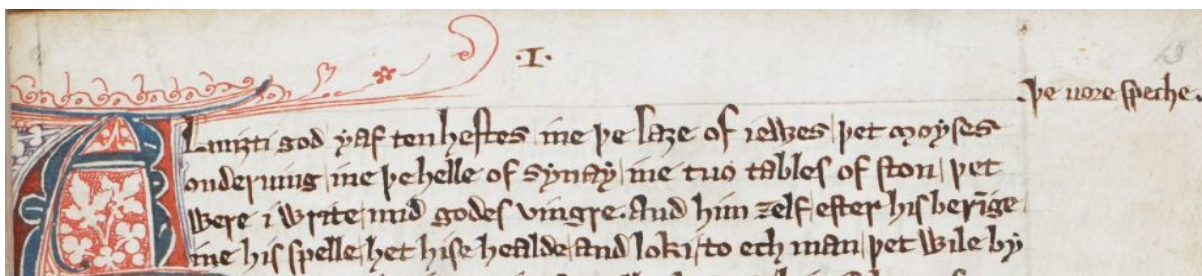 ·I·
þe uore speche.
Almiȝti god yaf ten hestes ine þe laȝe of iewes þet moyses
onderuing ine þe helle of synay ine tuo tables of ston þet
were i write mid godes vingre. And him zelf efter his beri̅ge
ine his spelle het hise healde and loki to ech man þet wile by